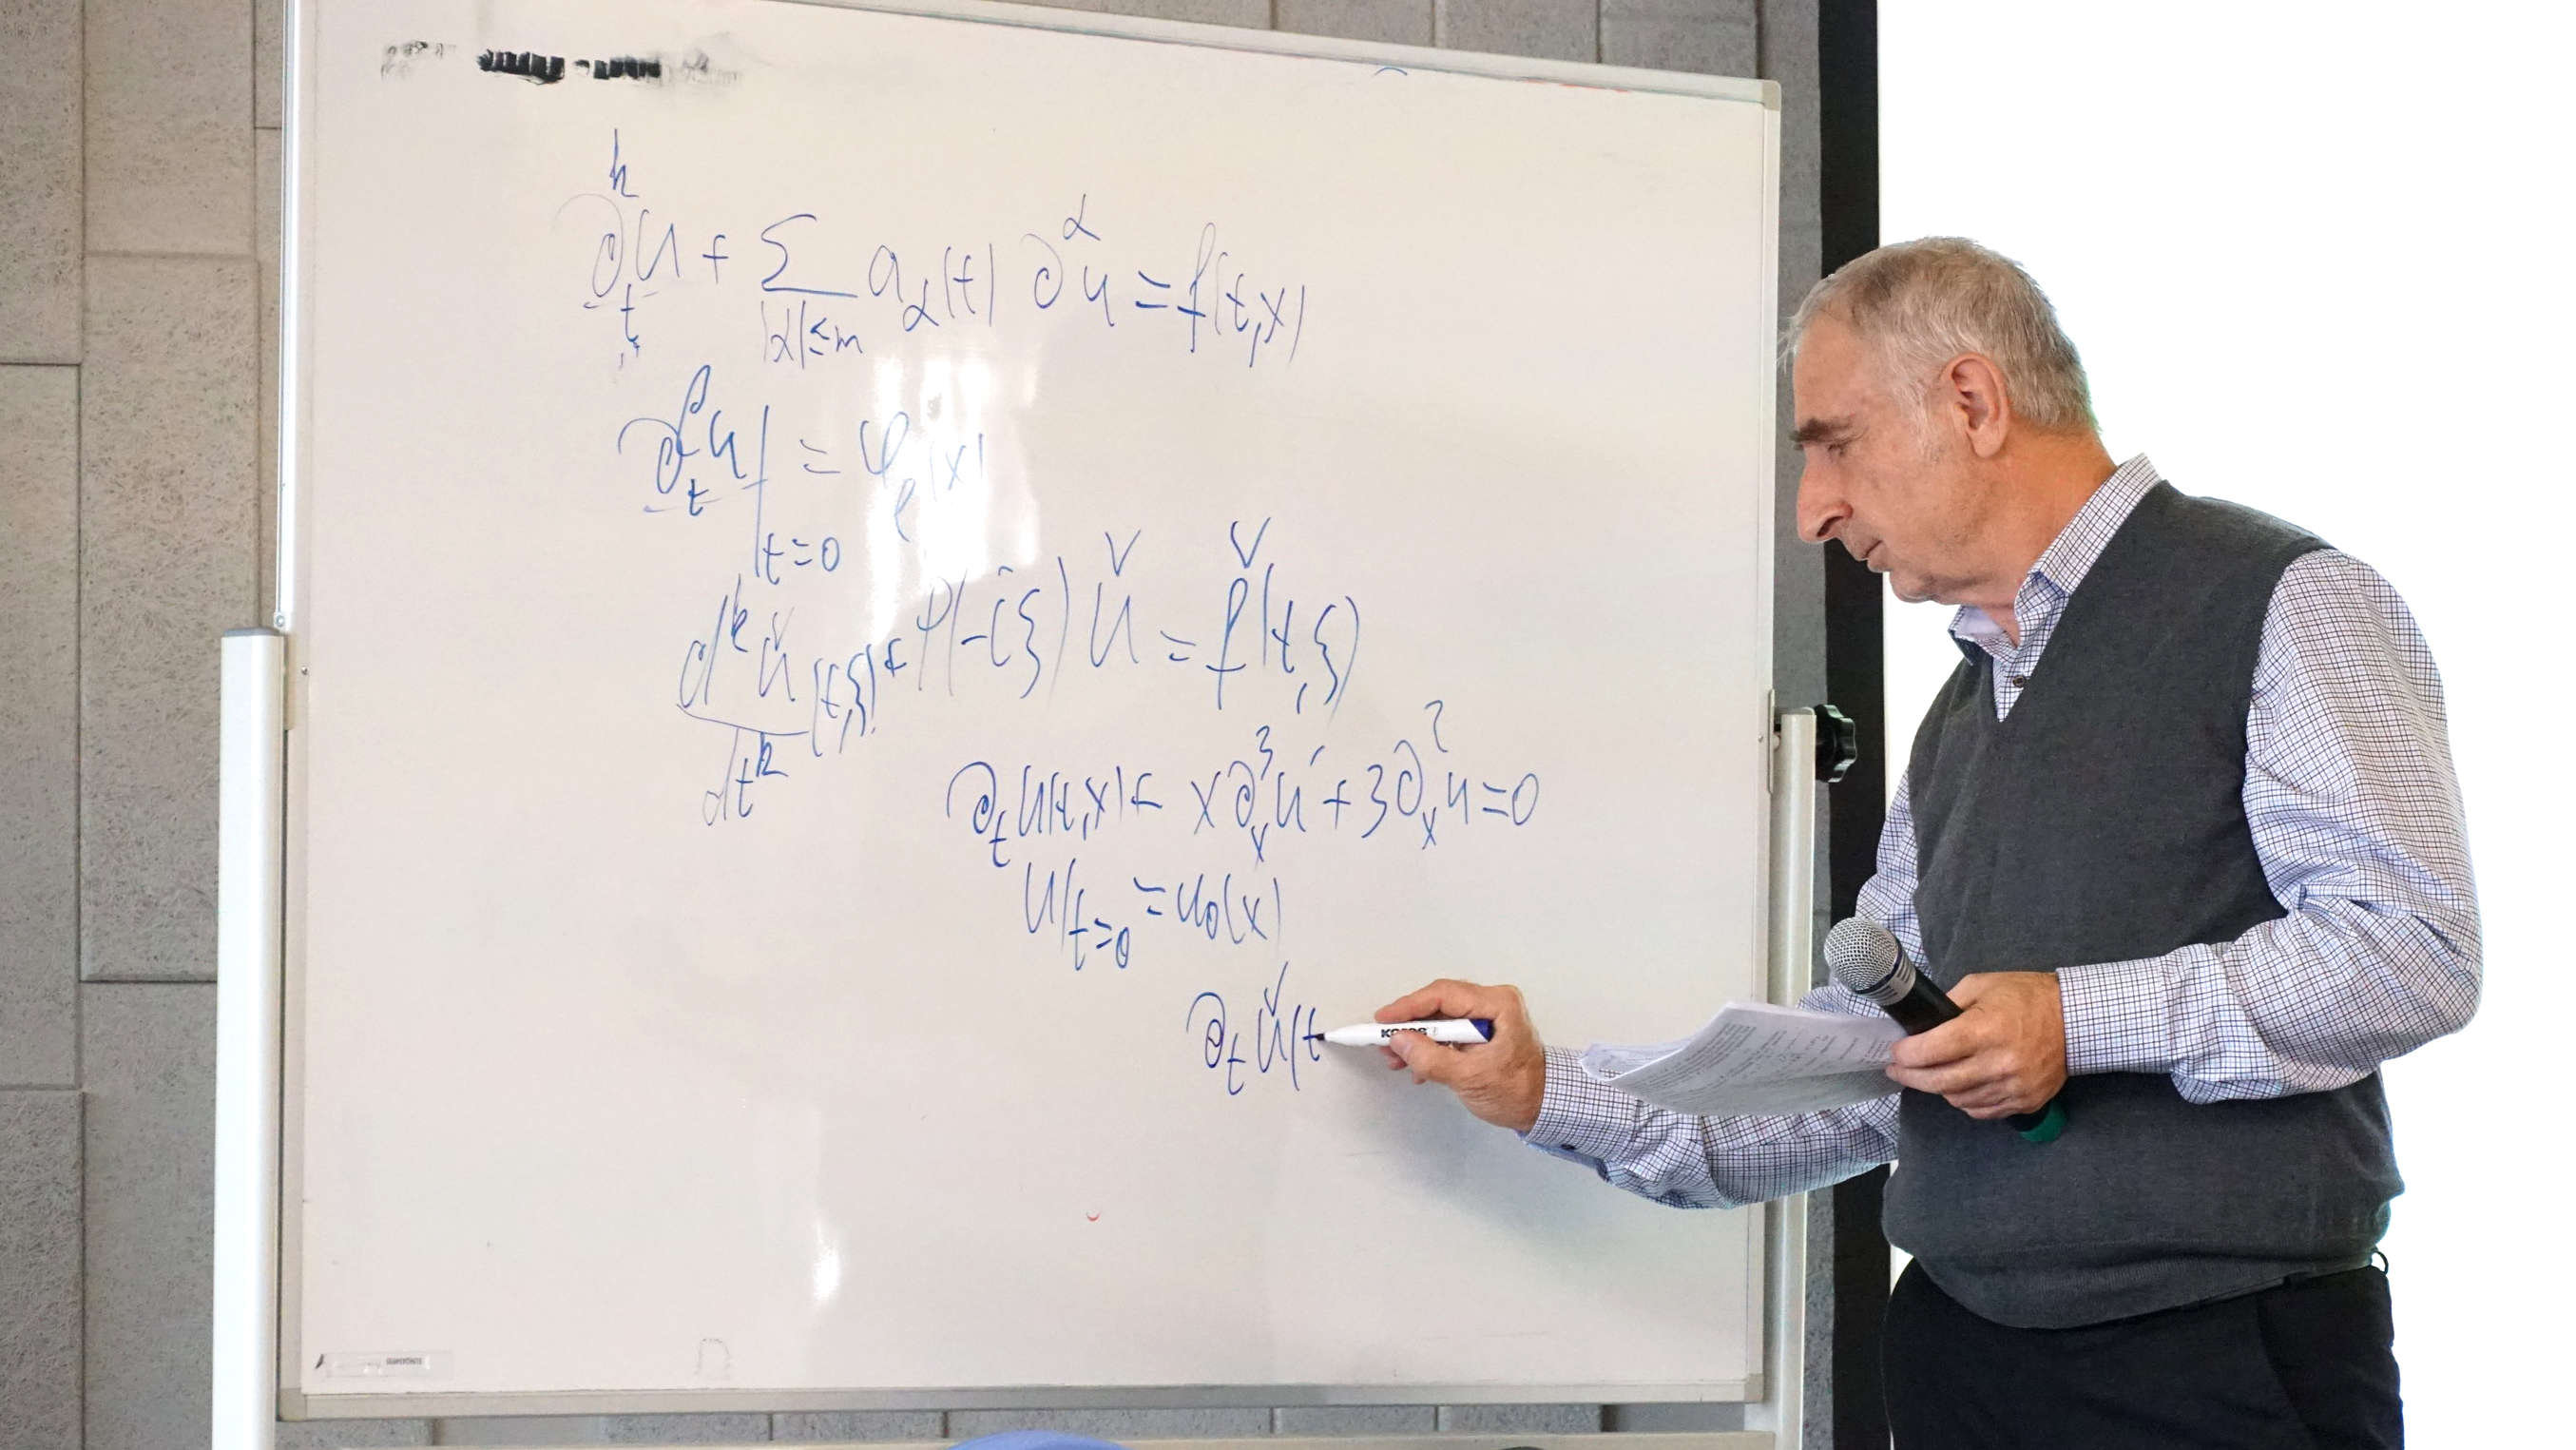 ∂ₜᵏu + Σ_{|α|≤m} a_α(t) ∂^α u = f(t,x)
∂ₜ^ℓ u|_{t=0} = φ_ℓ(x)
dᵏǔ/dtᵏ (t,ξ) + P(-iξ) ǔ = f̌(t,ξ)
∂ₜu(t,x) + x∂ₓ³u + 3∂ₓ²u = 0
u|_{t=0} = u₀(x)
∂ₜǔ(t